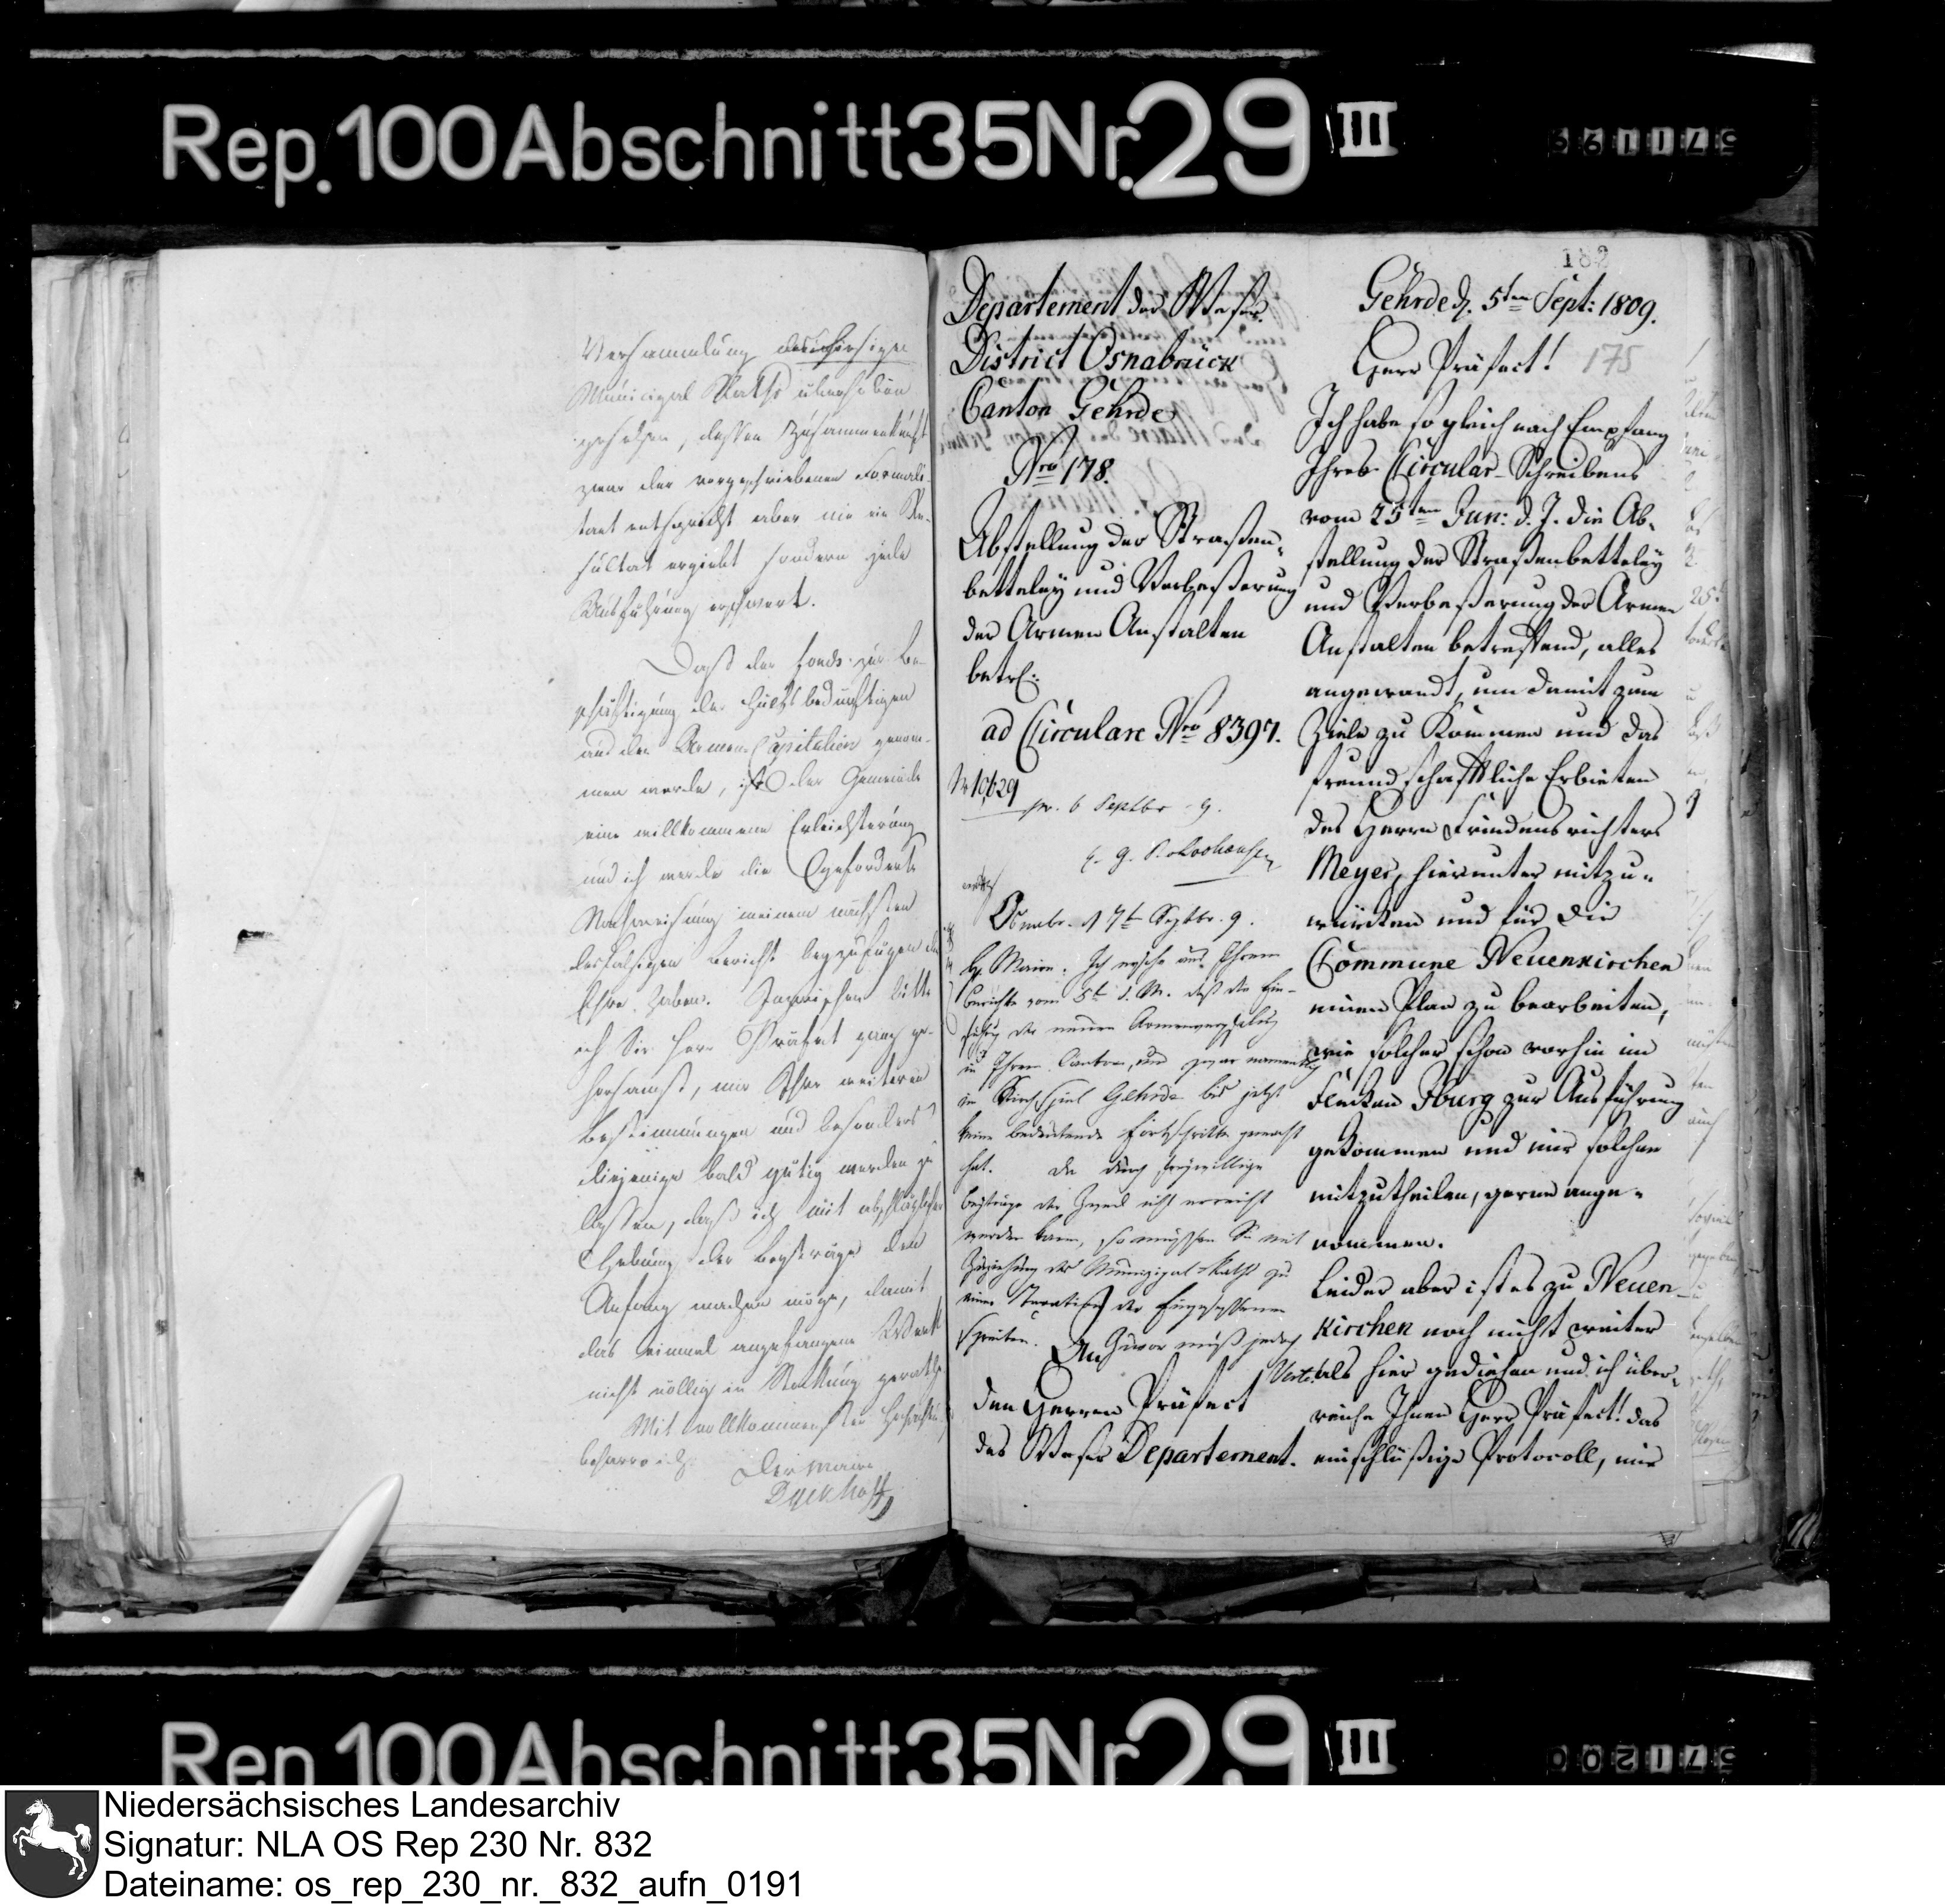 Rep. 100 Abschnitt 35 Nr. 29 III
571199
Versammlung des hiesigen
Municipal Raths überhoben
gesehen, dessen Zusammenkunft
zwar der vorgeschriebenen Formali-
taet entspricht aber nie ein Re-
sultat ergiebt sondern jede
Ausführung erschwert.
Daß der Fonds zur Be-
schäftigung der Hülfsbedürftigen
aus den Armen Capitalien genom-
men werde, ist der Gemeinde
eine willkommene Erleichterung
und ich werde die geforderte
Nachweisung meinem nächsten
desfalsigen Bericht beyzufügen die
Ehre haben. Inzwischen bitte
ich Sie Herr Präfect ganz ge-
horsamst, mir Ihre weiteren
Bestimmungen und besonders
diejenige bald gütig werden zu
lassen, daß ich mit
Hebung der Beyträge den
Anfang machen möge, damit
das einmal angefangene Werk
nicht völlig in Stockung gerathe
Mit vollkommenster Hochachtung
beharre ich
Der Maire
Dyckhoff
182
Departement der Weser.
District Osnabrück
Canton Gehrde
Nro 178.
Abstellung der Straßen-
betteley und Verbeßerung
der Armen Anstalten
betr:
ad Circulare Nro 8397.
N 10629
pr. 6 Septbr 9.
Osnabr. d 7t Septbr. 9.
H Maire. Ich ersehe aus Ihrem
Berichte vom 5t d. M. daß die Ein-
führg der neuen Armenverpflegg
in Ihrem Canton, und zwar namentlich
im Kirchspiel Gehrde bis jetzt
keine bedeutende Fortschritte gemacht
hat. Da durch freywillige
Beyträge der Zweck nicht erreicht
werden kann, so müssen Sie mit
Zuziehung des Munizipal-Raths zu
einer Taxation der Eingesessenen
schreiten. Zuvor muß jedoch
Verte.
An
den Herren Präfect
des Weser Departement.
Gehrde d. 5ten Sept: 1809.
Herr Präfect! 175
Ich habe so gleich nach Empfang
Ihres Circular-Schreibens
vom 25ten Jun: d. J. die Ab-
stellung der Straßenbetteley
und Verbeßerung der Armen
Anstalten betreffend, alles
angewandt, um damit zum
Ziele zu kommen und das
freundschaftliche Erbieten
des Herrn Friedensrichters
Meyer, hierunter mitzu-
würken und für die
Commune Neuenkirchen
einen Plan zu bearbeiten,
wie solcher schon vorhin im
Flecken Iburg zur Ausführung
gekommen und mir solchen
mitzutheilen, gerne ange-
nommen.
Leider aber ist es zu Neuen-
kirchen noch nicht weiter
als hier gediehen und ich über-
reiche Ihnen Herr Präfect! das
einschlüßige Protocoll, mir
Rep. 100 Abschnitt 35 Nr. 29 III
571200
Niedersächsisches Landesarchiv
Signatur: NLA OS Rep 230 Nr. 832
Dateiname: os_rep_230_nr._832_aufn_0191